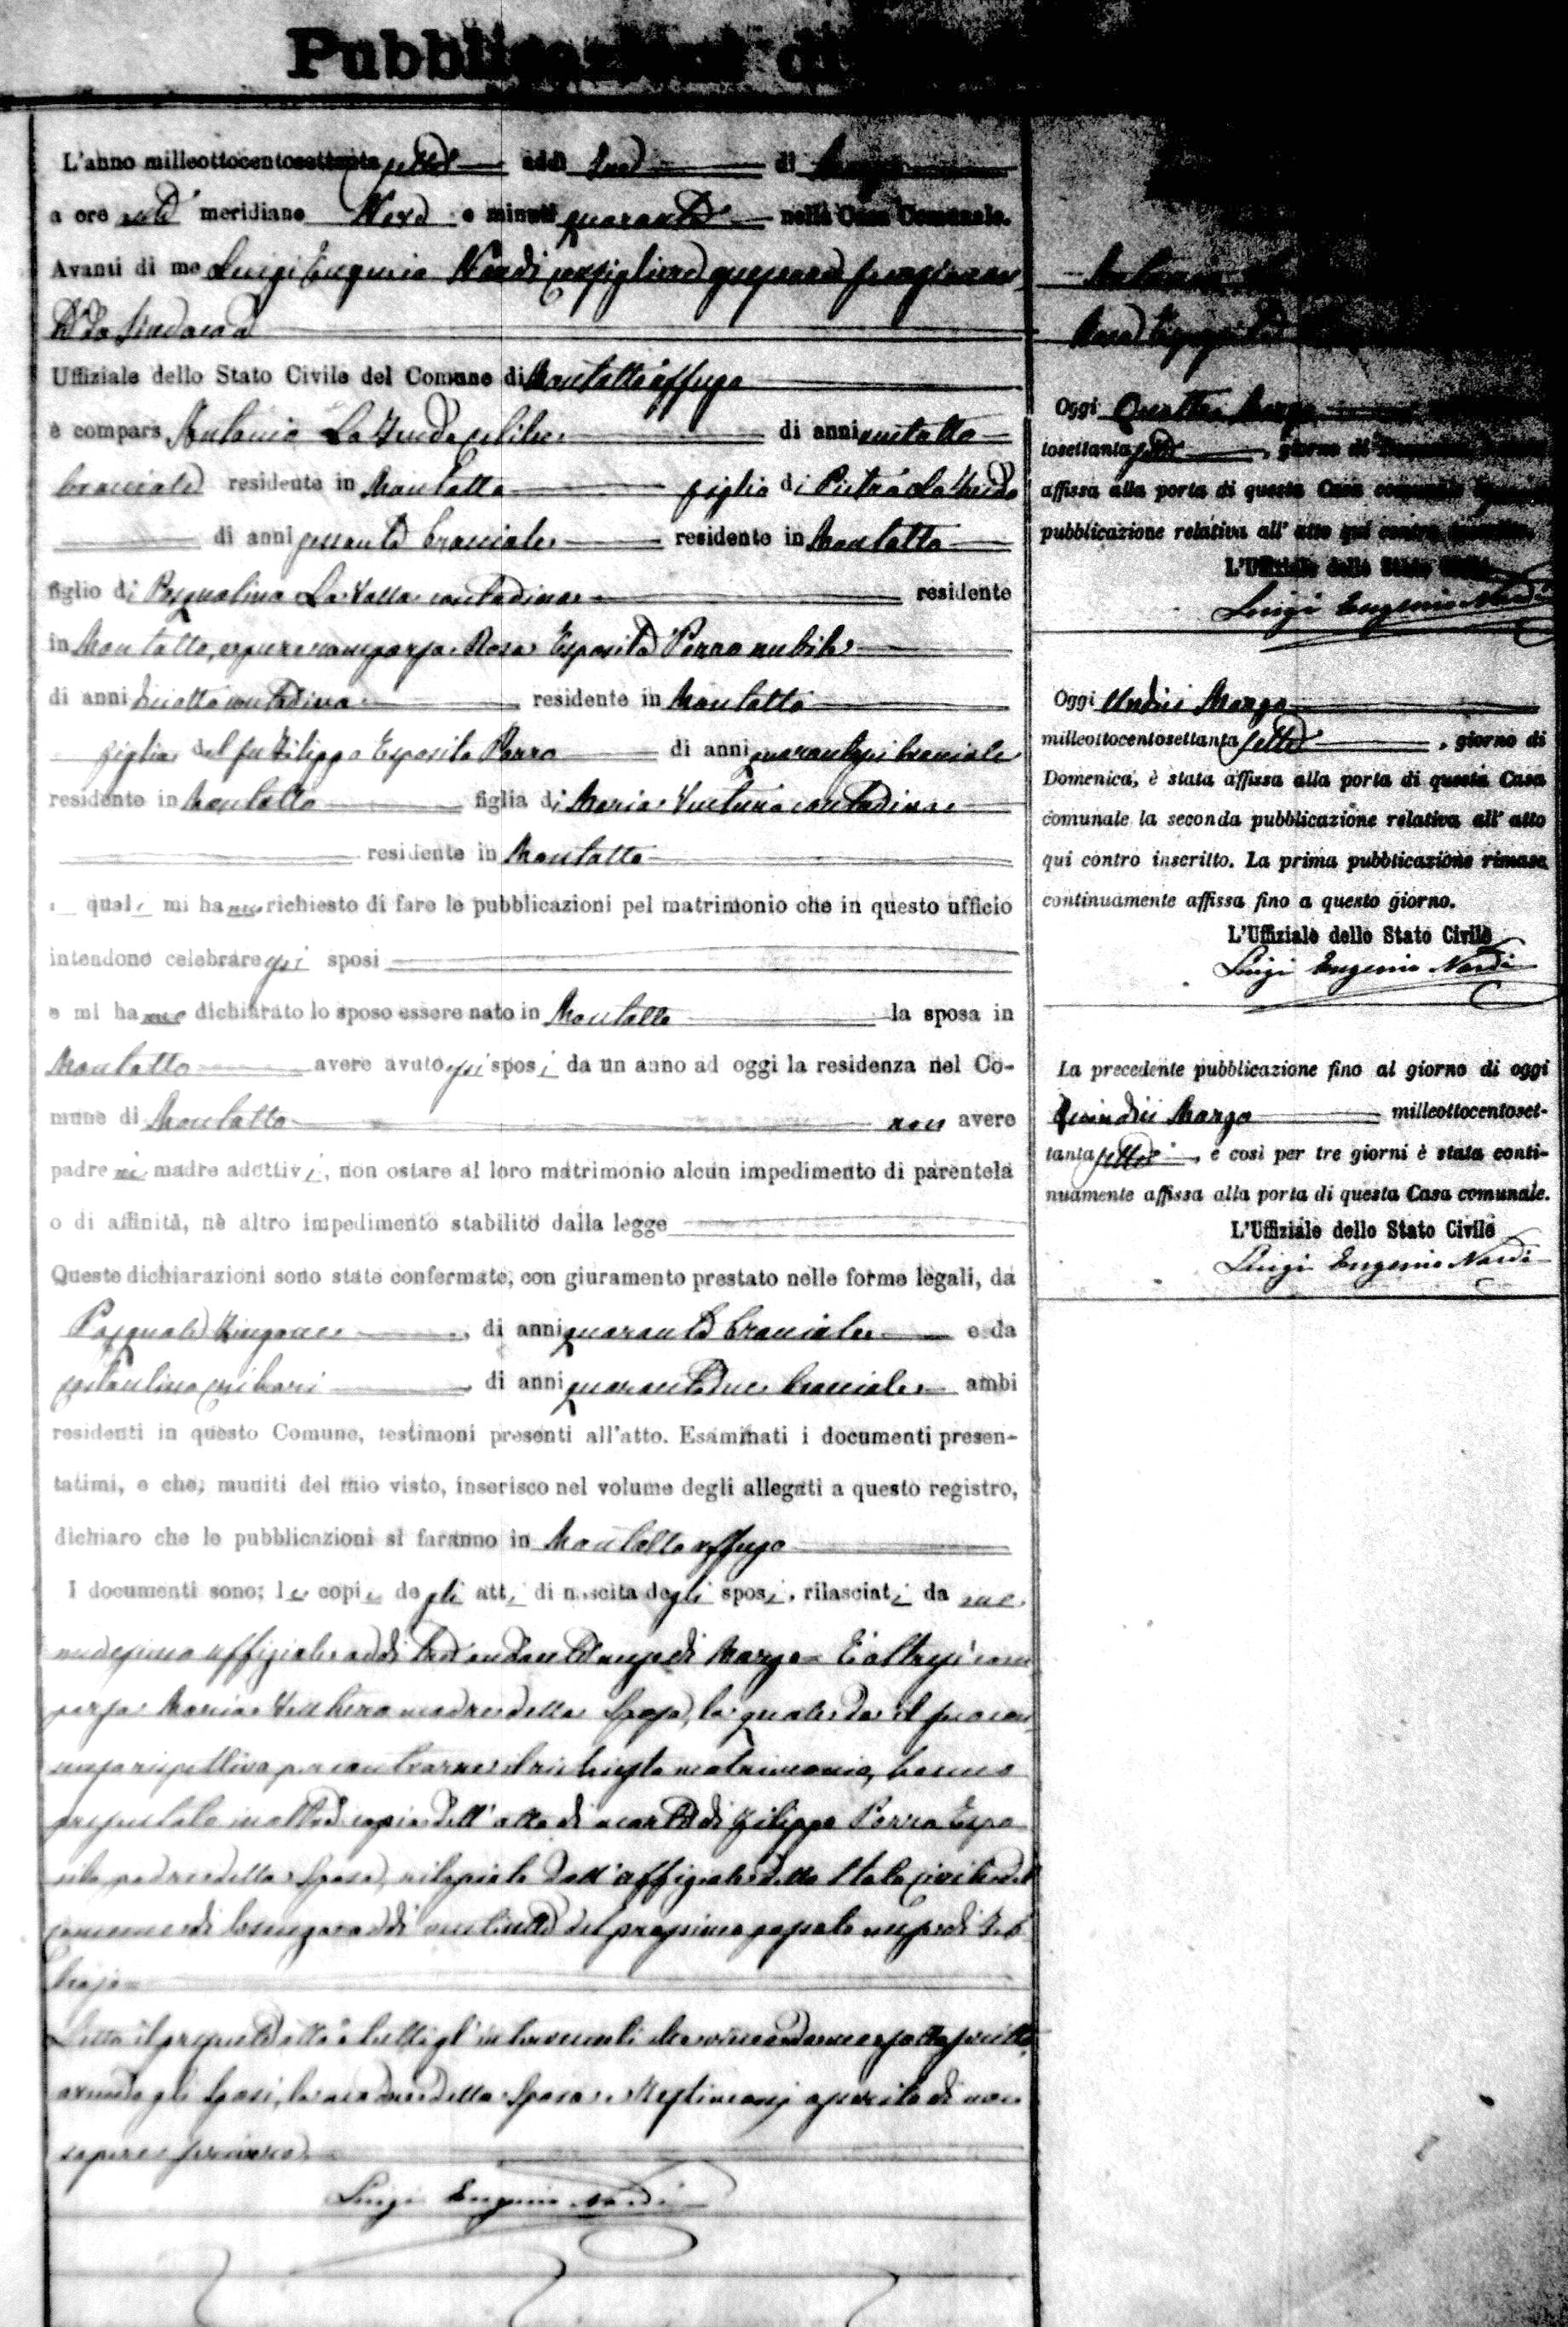 Pubblicazioni di
L'anno milleottocentosettanta sette addì tre di Marzo
a ore anti meridiane Nove e minuti quaranta nella Casa Comunale.
Avanti di me Luigi Eugenio Nardi Consigliere funzionan
te da Sindaco
Uffiziale dello Stato Civile del Comune di Montalto Uffugo
è compars Antonio celibe di anni ventotto
bracciale residente in Montalto figlio di Pietro
di anni sessanta bracciale residente in Montalto
figlio di Pasqualina La Valle contadina residente
in Montalto, e pure comparsa Rosa Esposito Perro nubile
di anni contadina residente in Montalto
figlia del fu Filippo Esposito Perro di anni bracciale
residente in Montalto figlia di Maria contadina
residente in Montalto
i quali mi hanno richiesto di fare le pubblicazioni pel matrimonio che in questo ufficio
intendono celebrare essi sposi
e mi hanno dichiarato lo sposo essere nato in Montalto la sposa in
Montalto avere avuto essi sposi da un anno ad oggi la residenza nel Co-
mune di Montalto non avere
padre nè madre adottivi, non ostare al loro matrimonio alcun impedimento di parentela
o di affinità, nè altro impedimento stabilito dalla legge
Queste dichiarazioni sono state confermate, con giuramento prestato nelle forme legali, da
Pasquale di anni quaranta bracciale e da
di anni quarantadue bracciale ambi
residenti in questo Comune, testimoni presenti all'atto. Esaminati i documenti presen-
tatimi, e che, muniti del mio visto, inserisco nel volume degli allegati a questo registro,
dichiaro che le pubblicazioni si faranno in Montalto Uffugo
I documenti sono; le copie degli atti di nascita degli sposi, rilasciati da me
medesimo uffiziale addì tre andante mese di Marzo = È altresì com
parsa Maria madre della Sposa, la quale dà il suo con
senso rispettivo per contrarre il richiesto matrimonio, hanno
presentato inoltre copia dell'atto di morte di Filippo Perro Espo
sito padre della Sposa, rilasciato dall'uffiziale dello Stato Civile del
Comune di addì del prossimo passato mese di Feb
brajo =
Letto il presente atto a tutti gl'intervenuti
avendo gli Sposi, la madre della Sposa e testimonj asserito di non
sapere scrivere
Luigi Eugenio Nardi
Antonio
Rosa Esposito
Oggi Quattro Marzo
tosettanta sette, giorno di
affissa alla porta di questa Casa comunale
pubblicazione relativa all' atto qui contro
L'Uffiziale dello Stato Civile
Luigi Eugenio Nardi
Oggi Undici Marzo
milleottocentosettanta sette, giorno di
Domenica, è stata affissa alla porta di questa Casa
comunale la seconda pubblicazione relativa all' atto
qui contro inscritto. La prima pubblicazione rimase
continuamente affissa fino a questo giorno.
L'Uffiziale dello Stato Civile
Luigi Eugenio Nardi
La precedente pubblicazione fino al giorno di oggi
Quindici Marzo milleottocentoset-
tanta sette, e così per tre giorni è stata conti-
nuamente affissa alla porta di questa Casa comunale.
L'Uffiziale dello Stato Civile
Luigi Eugenio Nardi